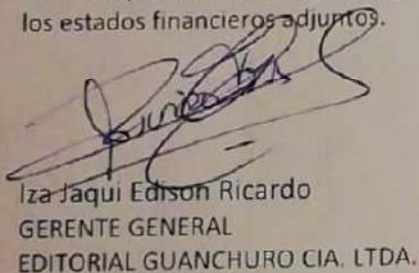 los estados financieros adjuntos.
Iza Jaqui Edison Ricardo
GERENTE GENERAL
EDITORIAL GUANCHURO CIA. LTDA.